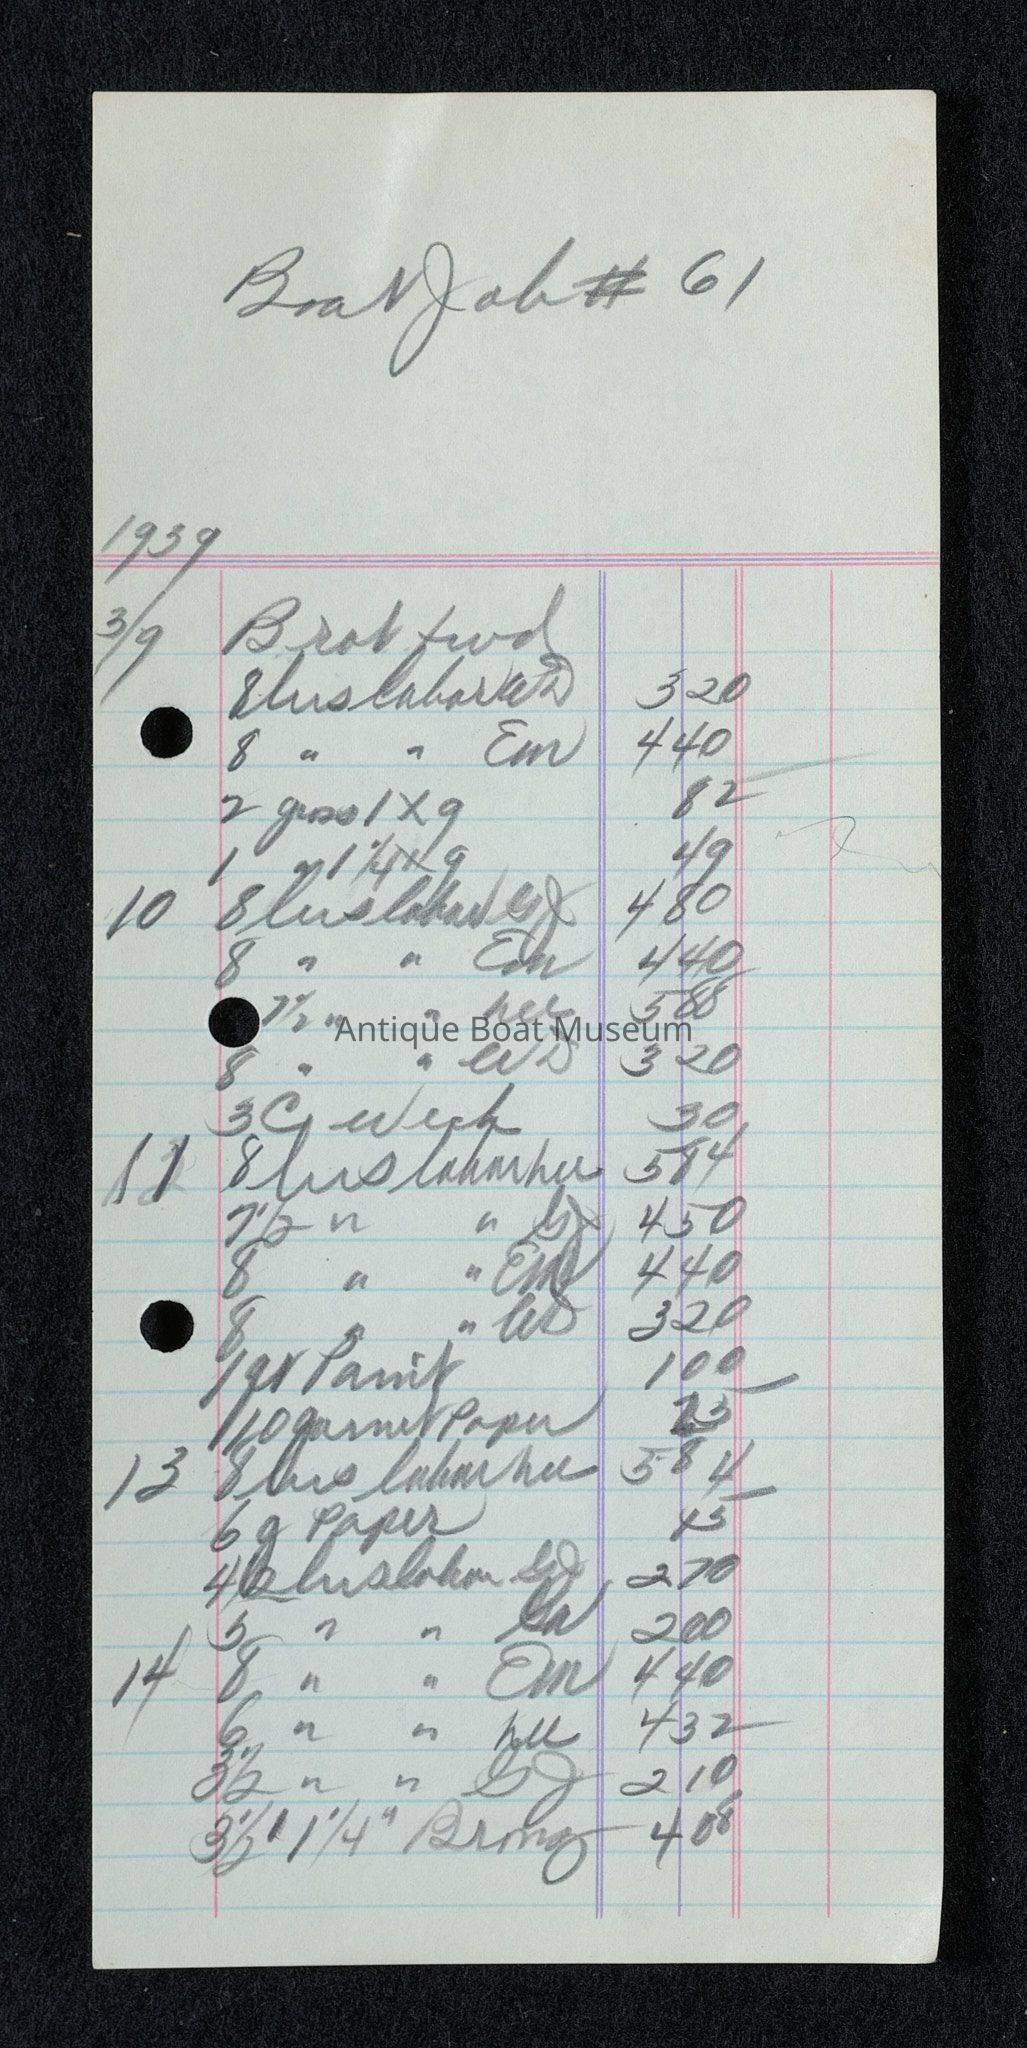 Boat Job # 61
1939
3/9 Brot fwd
8 hrs labor WD 320
8 " " Em 440
2 gross 1 X 9 82
1 " 1 1/4 X 9 49
10 8 hrs labor GJ 480
8 " " Em 440
7 1/2 " " 588
Antique Boat Museum
8 " " WD 320
3 C 30
11 8 hrs labor 584
7 1/2 " " GJ 450
8 " " Em 440
8 " " WD 320
1 qt Paint 100
10 garnet Paper
13 8 hrs labor 584
6 g Paper
4 1/2 hrs labor GJ 270
5 " " 200
14 8 " " Em 440
6 " " 432
3 1/2 " " GJ 210
3 1/2' 1 1/4" Bronz 408